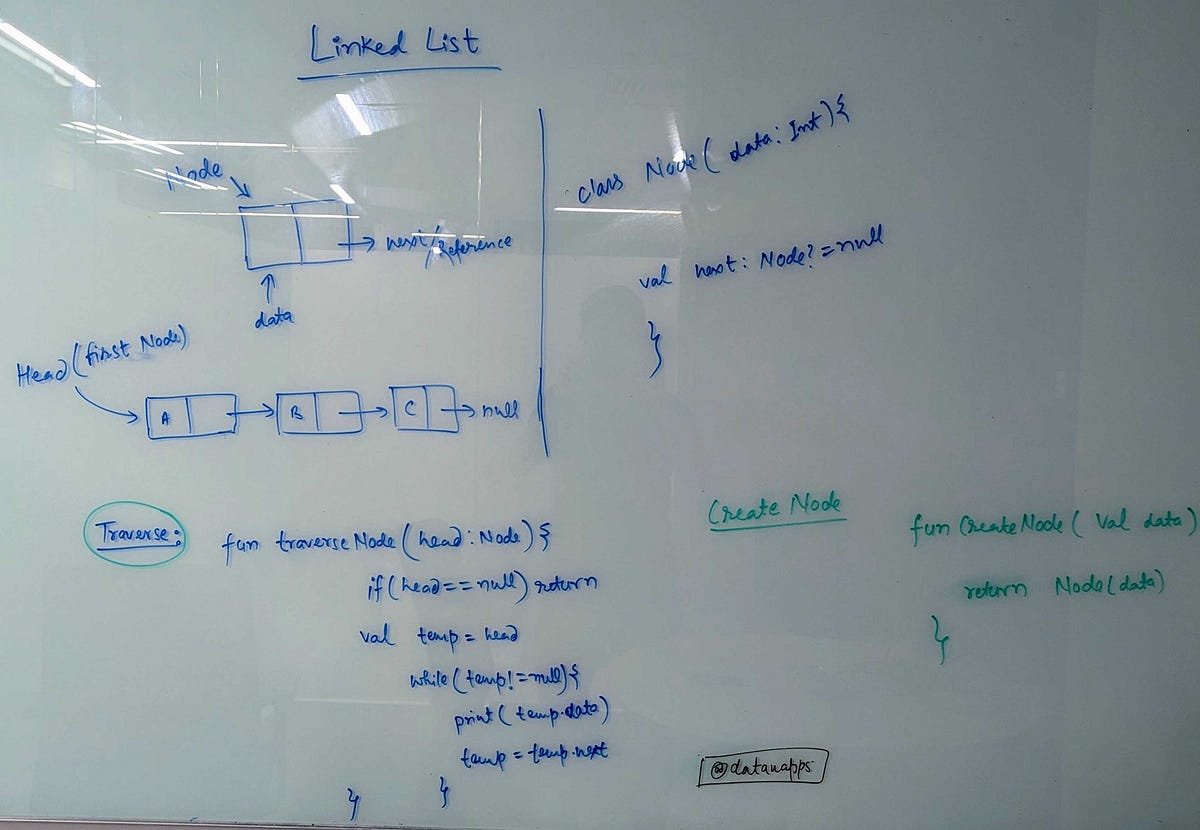 Linked List
Node
next/Reference
data
Head (first Node)
A B C null
class Node( data: Int){
val next: Node? = null
}
Traverse:
fun traverseNode(head: Node){
if(head==null) return
val temp = head
while(temp!=null){
print(temp.data)
temp = temp.next
}
}
Create Node
fun CreateNode( Val data)
return Node(data)
}
@datanapps